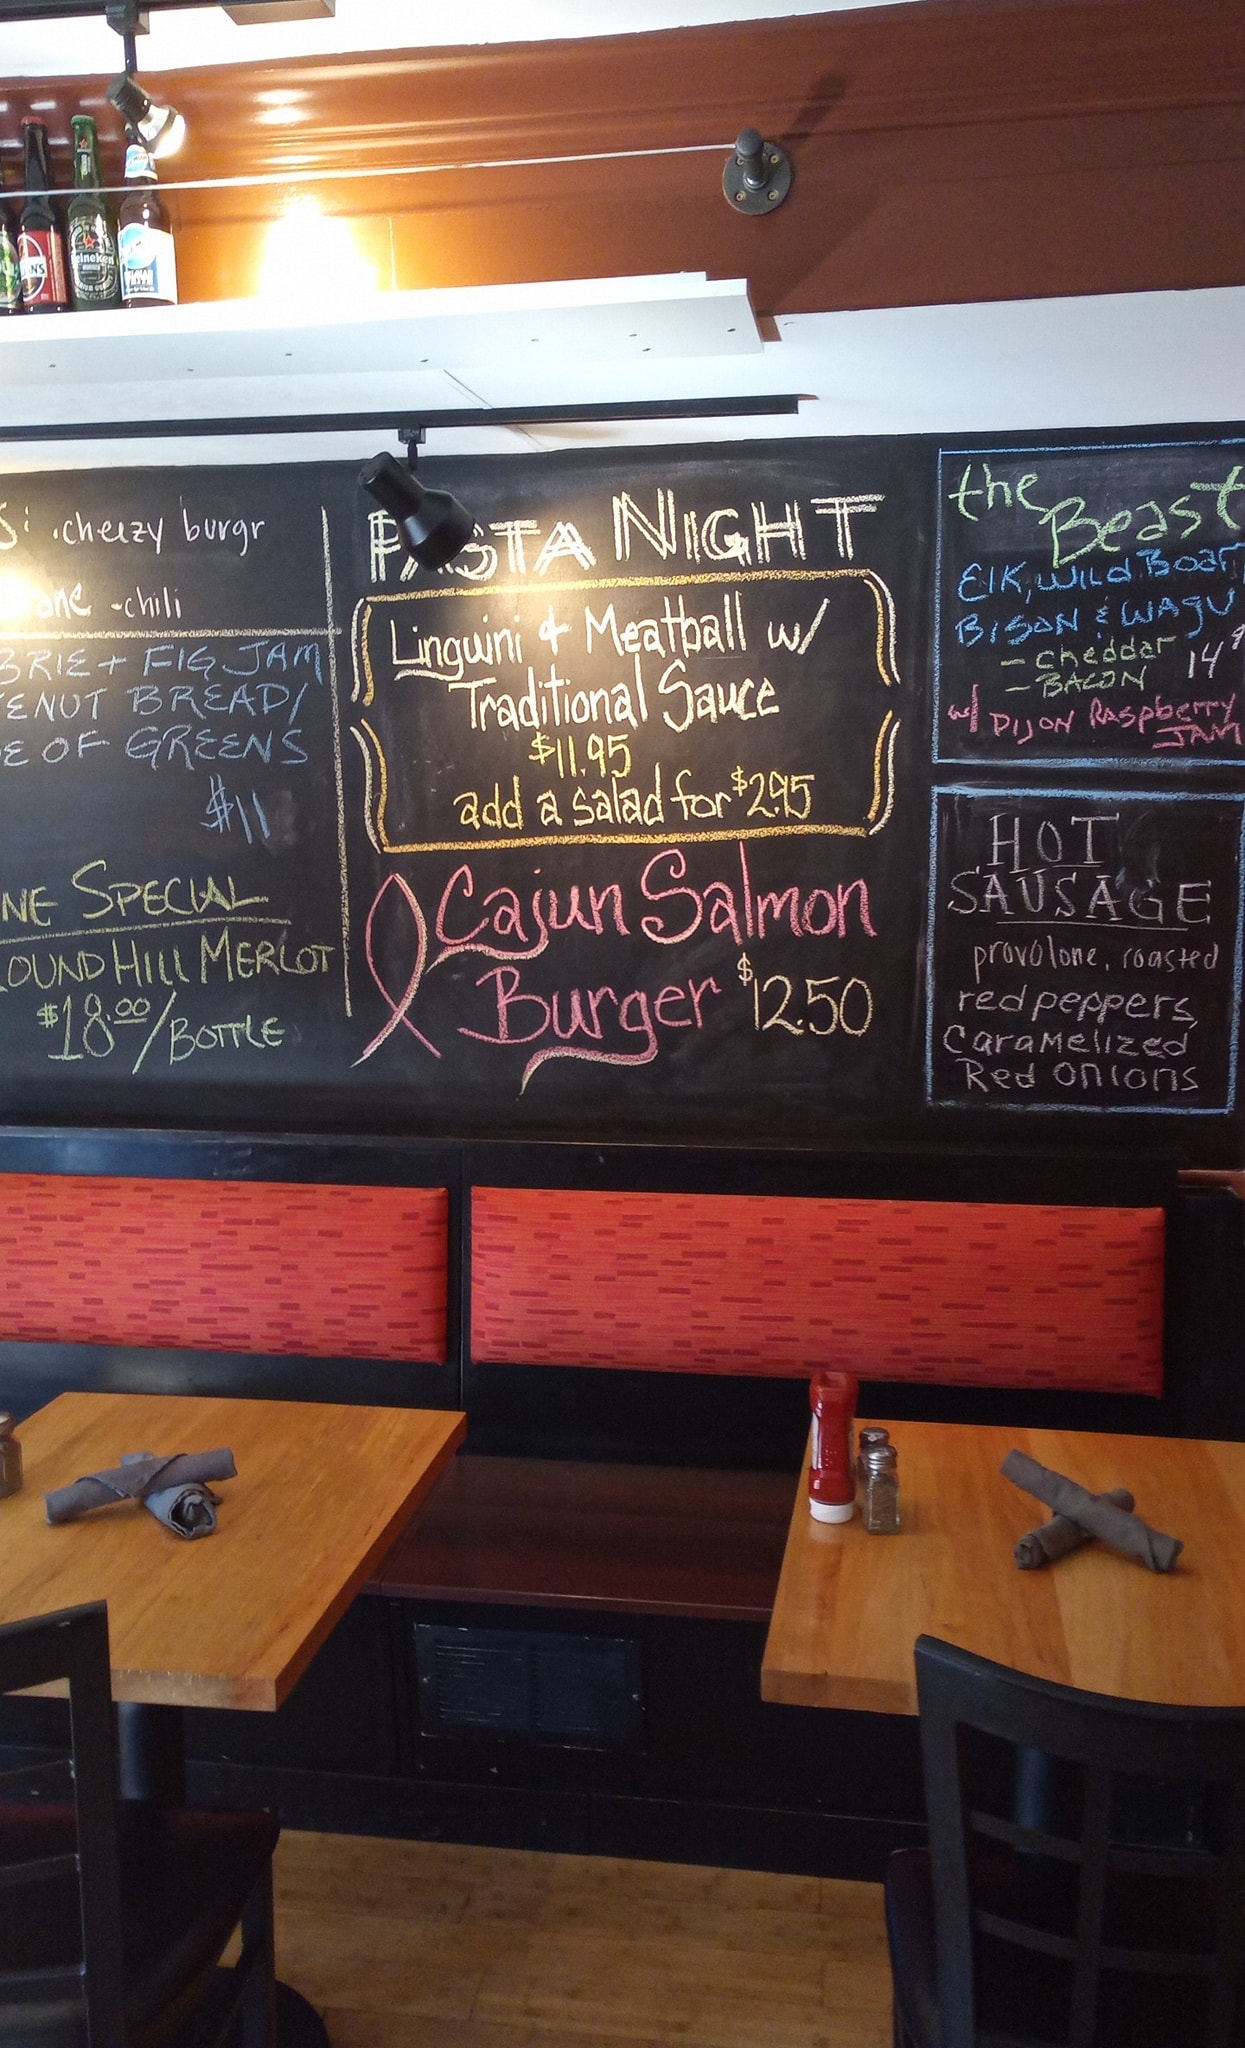 Heineken
cheezy burgr
-chili
BRIE + FIG JAM
BREAD/
OF GREENS
$11
SPECIAL
HILL MERLOT
$18.00/BOTTLE
PASTA NIGHT
Linguini & Meatball w/
Traditional Sauce
$11.95
add a salad for $2.95
Cajun Salmon
Burger $12.50
the
Beast
Elk, Wild Boar,
Bison & Wagu
- Cheddar
- BACON 14
w/ Dijon Raspberry
JAM
HOT
SAUSAGE
provolone, roasted
red peppers,
Caramelized
Red onions